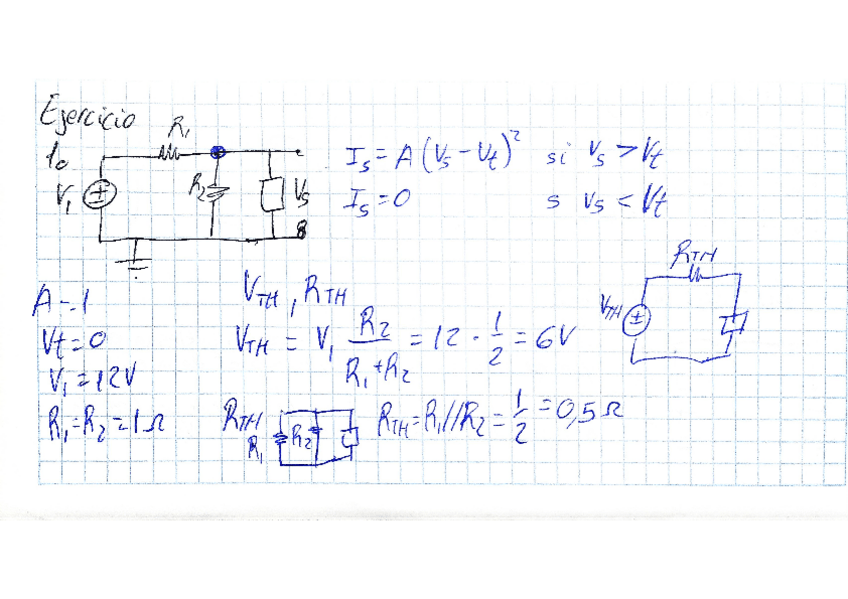 Ejercicio
R₁
V₁
R₂
Vs
Is = A (Vs - Vt)² si Vs > Vt
Is = 0 s Vs < Vt
RTH
VTH
A = 1
Vt = 0
V₁ = 12V
R₁ = R₂ = 1Ω
VTH, RTH
VTH = V₁ R₂ / R₁ + R₂ = 12 · 1/2 = 6V
RTH
R₁
R₂
RTH = R₁//R₂ = 1/2 = 0,5 Ω